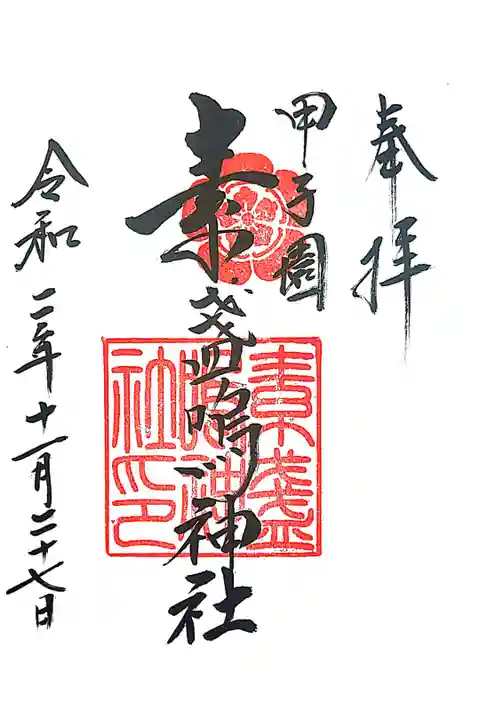 奉拝
甲子園
素盞嗚神社
令和二年十一月二十七日
素盞
嗚神
社印